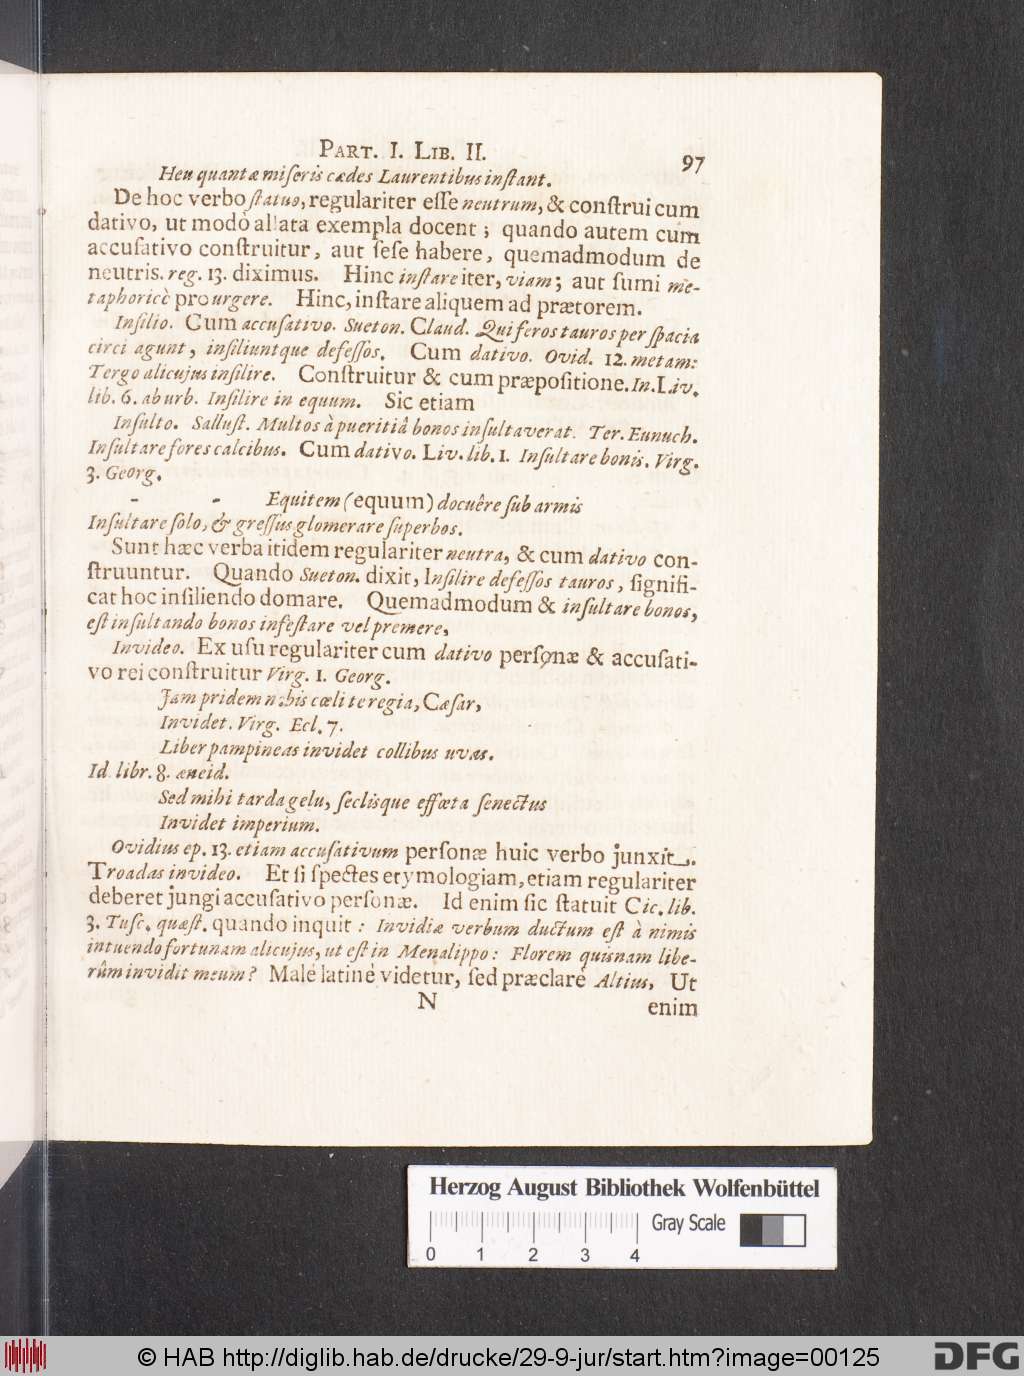 PART. I. LIB. II. 97
Heu quantæ miſeris cædes Laurentibus inſtant.
De hoc verbo ſtatuo, regulariter eſſe neutrum, & conſtrui cum
dativo, ut modò allata exempla docent; quando autem cum
accuſativo conſtruitur, aut ſeſe habere, quemadmodum de
neutris. reg. 13. diximus. Hinc inſtare iter, viam; aut ſumi me-
taphoricè pro urgere. Hinc, inſtare aliquem ad prætorem.
Inſilio. Cum accuſativo. Sueton. Claud. Qui feros tauros per ſpacia
circi agunt, inſiliuntque defeſſos. Cum dativo. Ovid. 12. metam:
Tergo alicujus inſilire. Conſtruitur & cum præpoſitione. In. Liv.
lib. 6. ab urb. Inſilire in equum. Sic etiam
Inſulto. Salluſt. Multos à pueritiâ bonos inſultaverat. Ter. Eunuch.
Inſultare fores calcibus. Cum dativo. Liv. lib. 1. Inſultare bonis. Virg.
3. Georg.
- - Equitem (equum) docuêre ſub armis
Inſultare ſolo, & greſſus glomerare ſuperbos.
Sunt hæc verba itidem regulariter neutra, & cum dativo con-
ſtruuntur. Quando Sueton. dixit, Inſilire defeſſos tauros, ſignifi-
cat hoc inſiliendo domare. Quemadmodum & inſultare bonos,
eſt inſultando bonos infeſtare vel premere,
Invideo. Ex uſu regulariter cum dativo perſonæ & accuſati-
vo rei conſtruitur Virg. 1. Georg.
Jam pridem nobis cœli te regia, Cæſar,
Invidet. Virg. Ecl. 7.
Liber pampineas invidet collibus uvas.
Id libr. 8. æneid.
Sed mihi tarda gelu, ſeclisque effœta ſenectus
Invidet imperium.
Ovidius ep. 13. etiam accuſativum perſonæ huic verbo junxit.
Troadas invideo. Et ſi ſpectes etymologiam, etiam regulariter
deberet jungi accuſativo perſonæ. Id enim ſic ſtatuit Cic. lib.
3. Tuſc. quæſt. quando inquit: Invidiæ verbum ductum eſt à nimis
intuendo fortunam alicujus, ut eſt in Menalippo: Florem quisnam libe-
rûm invidit meum? Malè latinè videtur, ſed præclarè Attius, Ut
N enim
Herzog August Bibliothek Wolfenbüttel
Gray Scale
0 1 2 3 4
© HAB http://diglib.hab.de/drucke/29-9-jur/start.htm?image=00125
DFG